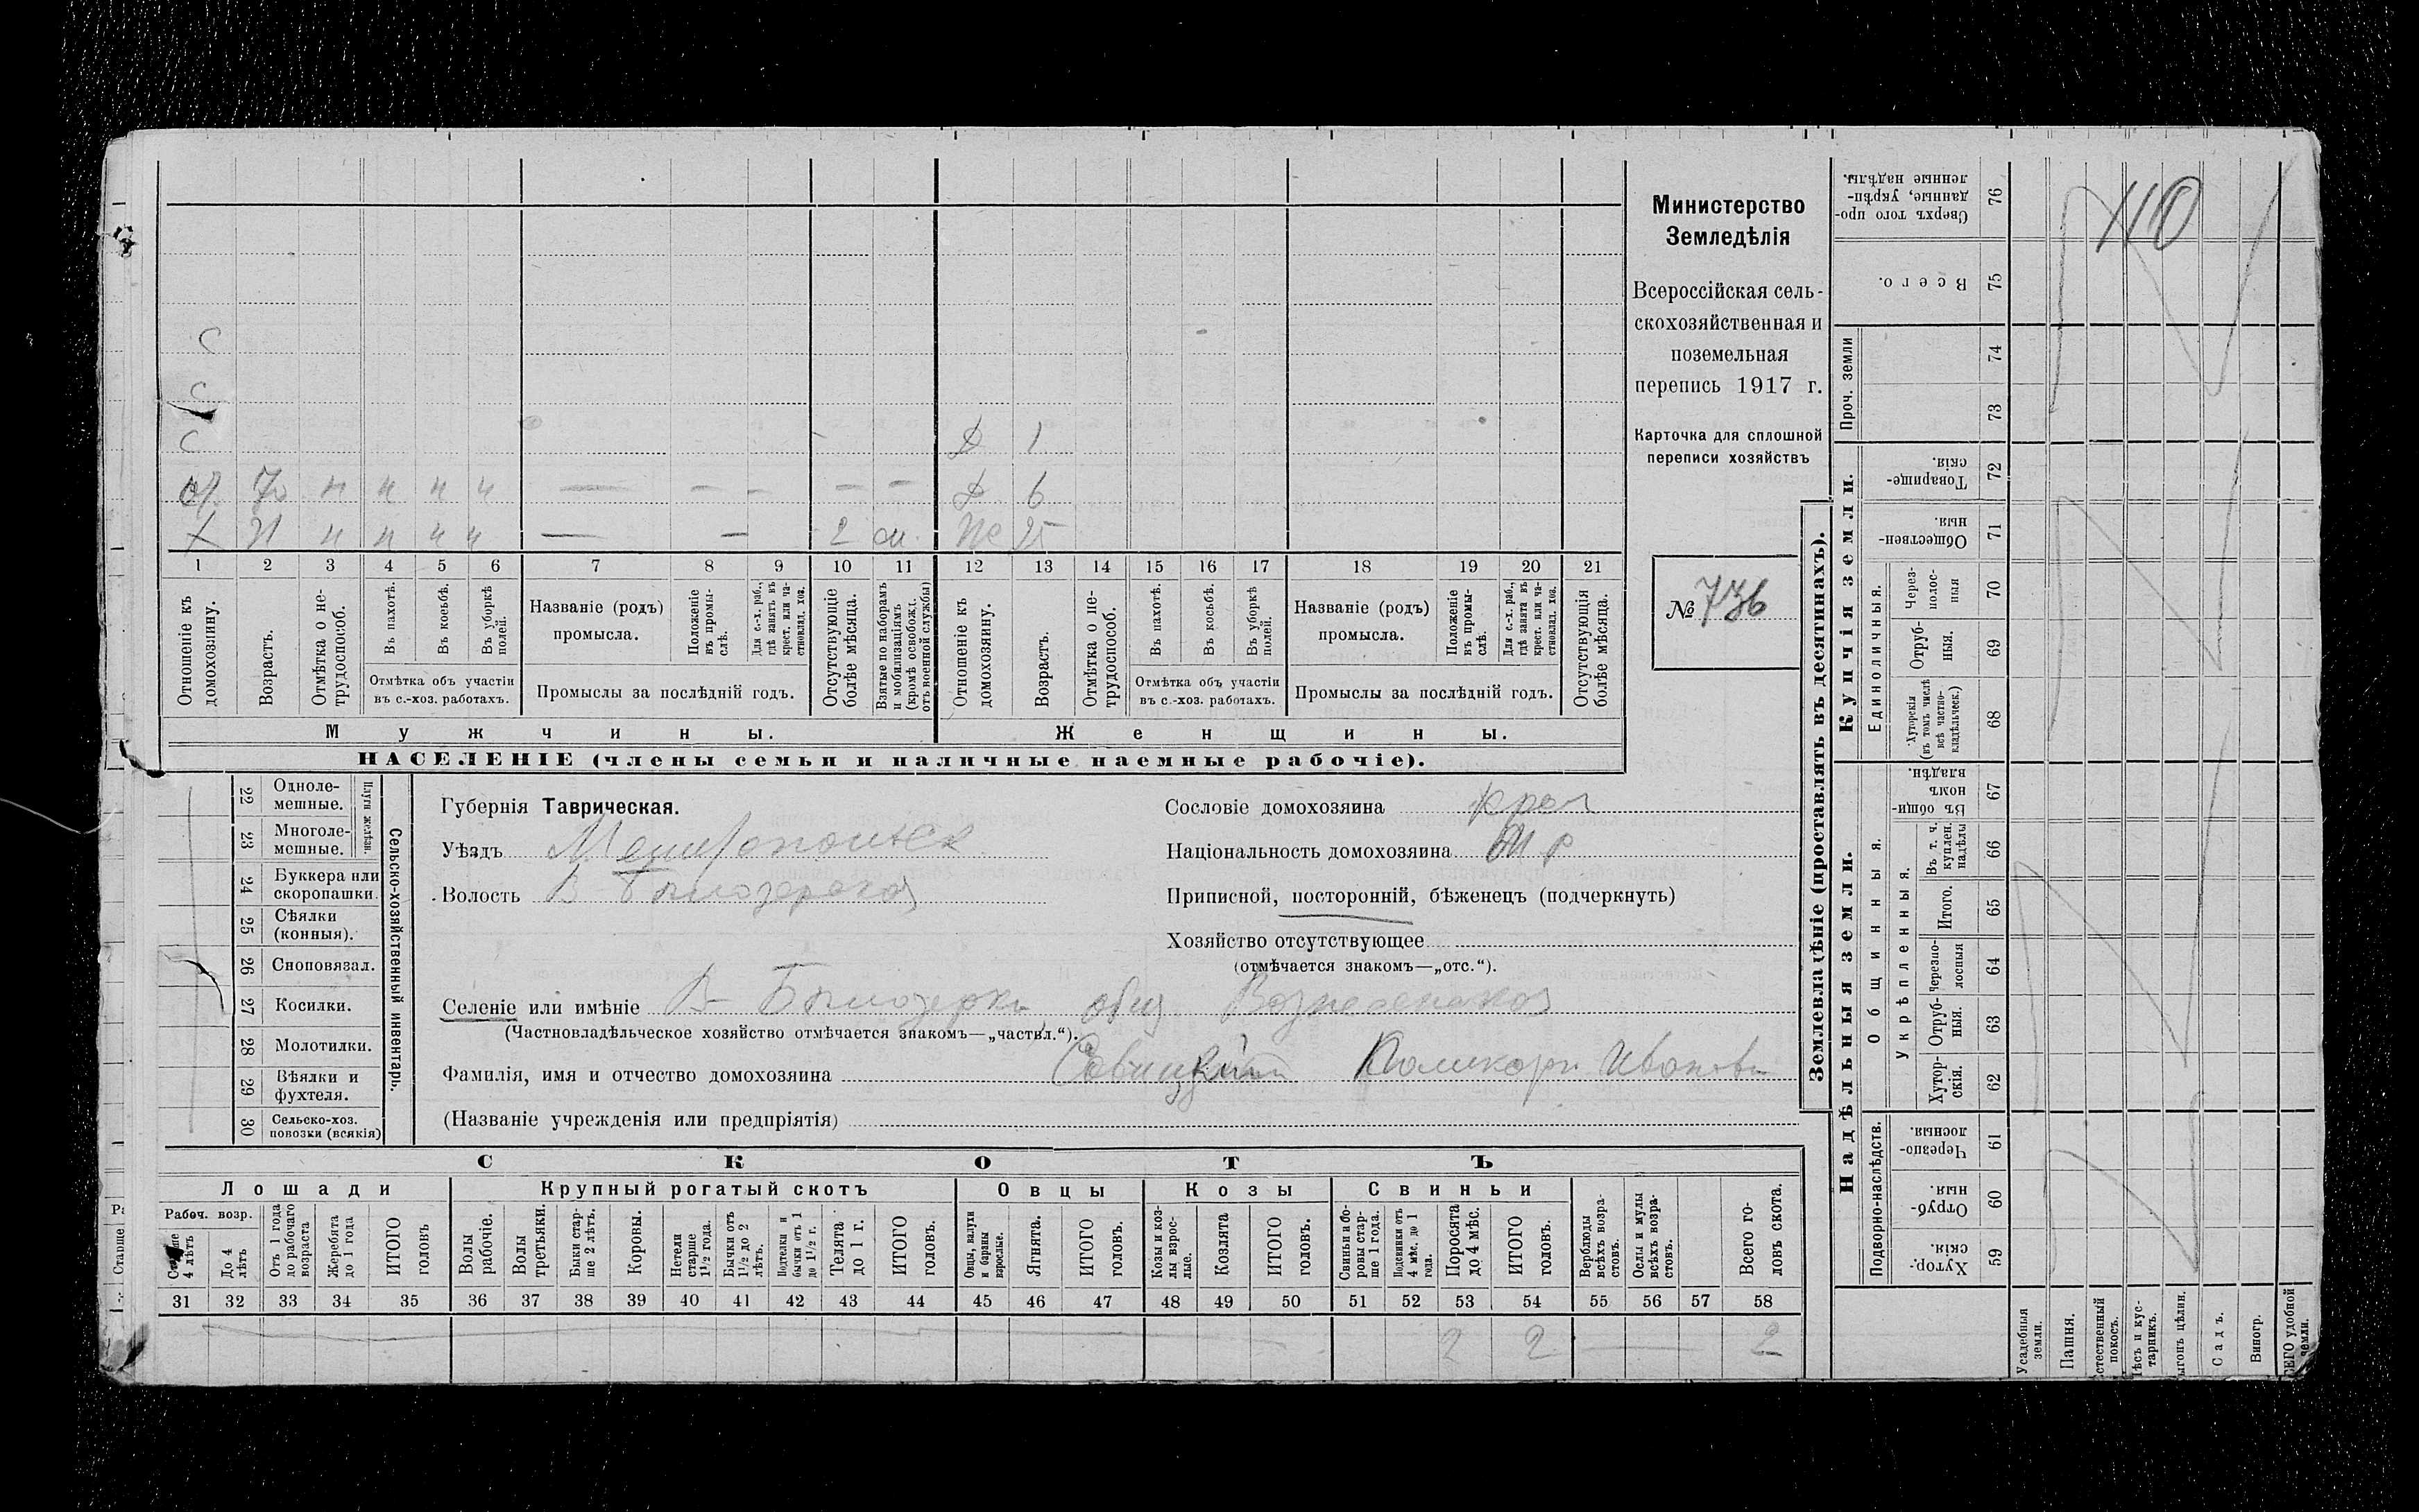 С
С
С Д 1
от. 70 н н н ч — — — — — Д 6
Х 31 н н н ч — — 2 м. Же 25
1 2 3 4 5 6 7 8 9 10 11 12 13 14 15 16 17 18 19 20 21
Отношеніе къ домохозяину.
Возрастъ.
Отмѣтка о нетрудоспособ.
Въ пахотѣ.
Въ косьбѣ.
Въ уборкѣ полей.
Отмѣтка объ участіи
въ с.-хоз. работахъ.
Названіе (родъ)
промысла.
Положеніе въ промыслѣ.
Для с.-х. раб., гдѣ занятъ въ крест. или частновлад. хоз.
Промыслы за послѣдній годъ.
Отсутствующіе болѣе мѣсяца.
Взятые по наборамъ и мобилизаціямъ (кромѣ освобожд. отъ военной службы)
Отношеніе къ домохозяину.
Возрастъ.
Отмѣтка о нетрудоспособ.
Въ пахотѣ.
Въ косьбѣ.
Въ уборкѣ полей.
Отмѣтка объ участіи
въ с.-хоз. работахъ.
Названіе (родъ)
промысла.
Положеніе въ промыслѣ.
Для с.-х. раб., гдѣ занята въ крест. или частновлад. хоз.
Промыслы за послѣдній годъ.
Отсутствующія болѣе мѣсяца.
Мужчины. Женщины.
НАСЕЛЕНІЕ (члены семьи и наличные наемные рабочіе).
Министерство
Земледѣлія
Всероссійская сель-
скохозяйственная и
поземельная
перепись 1917 г.
Карточка для сплошной
переписи хозяйствъ
№ 736
Сельско-хозяйственный инвентарь.
Плуги желѣзн.
22 Одноле-
мешные.
23 Многоле-
мешные.
24 Буккера или
скоропашки.
25 Сѣялки
(конныя).
26 Сноповязал.
27 Косилки.
28 Молотилки.
29 Вѣялки и
фухтеля.
30 Сельско-хоз.
повозки (всякія)
Губернія Таврическая.
Уѣздъ Мелитопольск
Волость В-Бѣлозерская
Сословіе домохозяина крес
Національность домохозяина М р
Приписной, посторонній, бѣженецъ (подчеркнуть)
Хозяйство отсутствующее
(отмѣчается знакомъ—„отс.“).
Селеніе или имѣніе В-Бѣлозерка, общ. Вознесенская
(Частновладѣльческое хозяйство отмѣчается знакомъ—„частвл.“).
Фамилія, имя и отчество домохозяина Савицкій Поликарп Иванови
(Названіе учрежденія или предпріятія)
СКОТЪ
Лошади Крупный рогатый скотъ Овцы Козы Свиньи
Рабоч. возр.
Старше 4 лѣтъ
До 4 лѣтъ
Отъ 1 года до рабочаго возраста
Жеребята до 1 года
ИТОГО головъ
Волы рабочіе.
Волы третьяки.
Быки старше 2 лѣтъ.
Коровы.
Нетели старше 1½ года.
Бычки отъ 1½ до 2 лѣтъ.
Подтелки и бычки отъ 1 до 1½ г.
Телята до 1 г.
ИТОГО головъ.
Овцы, валухи и бараны взрослые.
Ягнята.
ИТОГО головъ.
Козы и козлы взрослые.
Козлята
ИТОГО головъ.
Свиньи и боровы старше 1 года.
Подсвинки отъ 4 мѣс. до 1 года.
Поросята до 4 мѣс.
ИТОГО головъ.
Верблюды всѣхъ возрастовъ.
Ослы и мулы всѣхъ возрастовъ.
Всего головъ скота.
31 32 33 34 35 36 37 38 39 40 41 42 43 44 45 46 47 48 49 50 51 52 53 54 55 56 57 58
2 2 — 2
Землевладѣніе (проставлять въ десятинахъ).
Купчія земли.
Надѣльныя земли.
Сверхъ того проданные, укрѣпленные надѣлы. 76
110
Всего. 75
Проч. земли
74
73
Товарищескія. 72
Общественныя. 71
Единоличныя.
Черезполосныя 70
Отрубныя. 69
Хуторскія (въ томъ числѣ всѣ частновладѣльческ.) 68
Общинныя.
Въ общинномъ владѣн. 67
Укрѣпленныя.
Въ т. ч. куплен. надѣлы 66
Итого. 65
Черезполосныя 64
Отрубныя. 63
Хуторскія. 62
Подворно-наслѣдств.
Черезполосныя. 61
Отрубныя. 60
Хуторскія. 59
Усадебныя земли.
Пашня.
стественный покосъ.
ѣсъ и кустарникъ.
ыгонъ цѣлин.
Садъ.
Виногр.
СЕГО удобной земли.